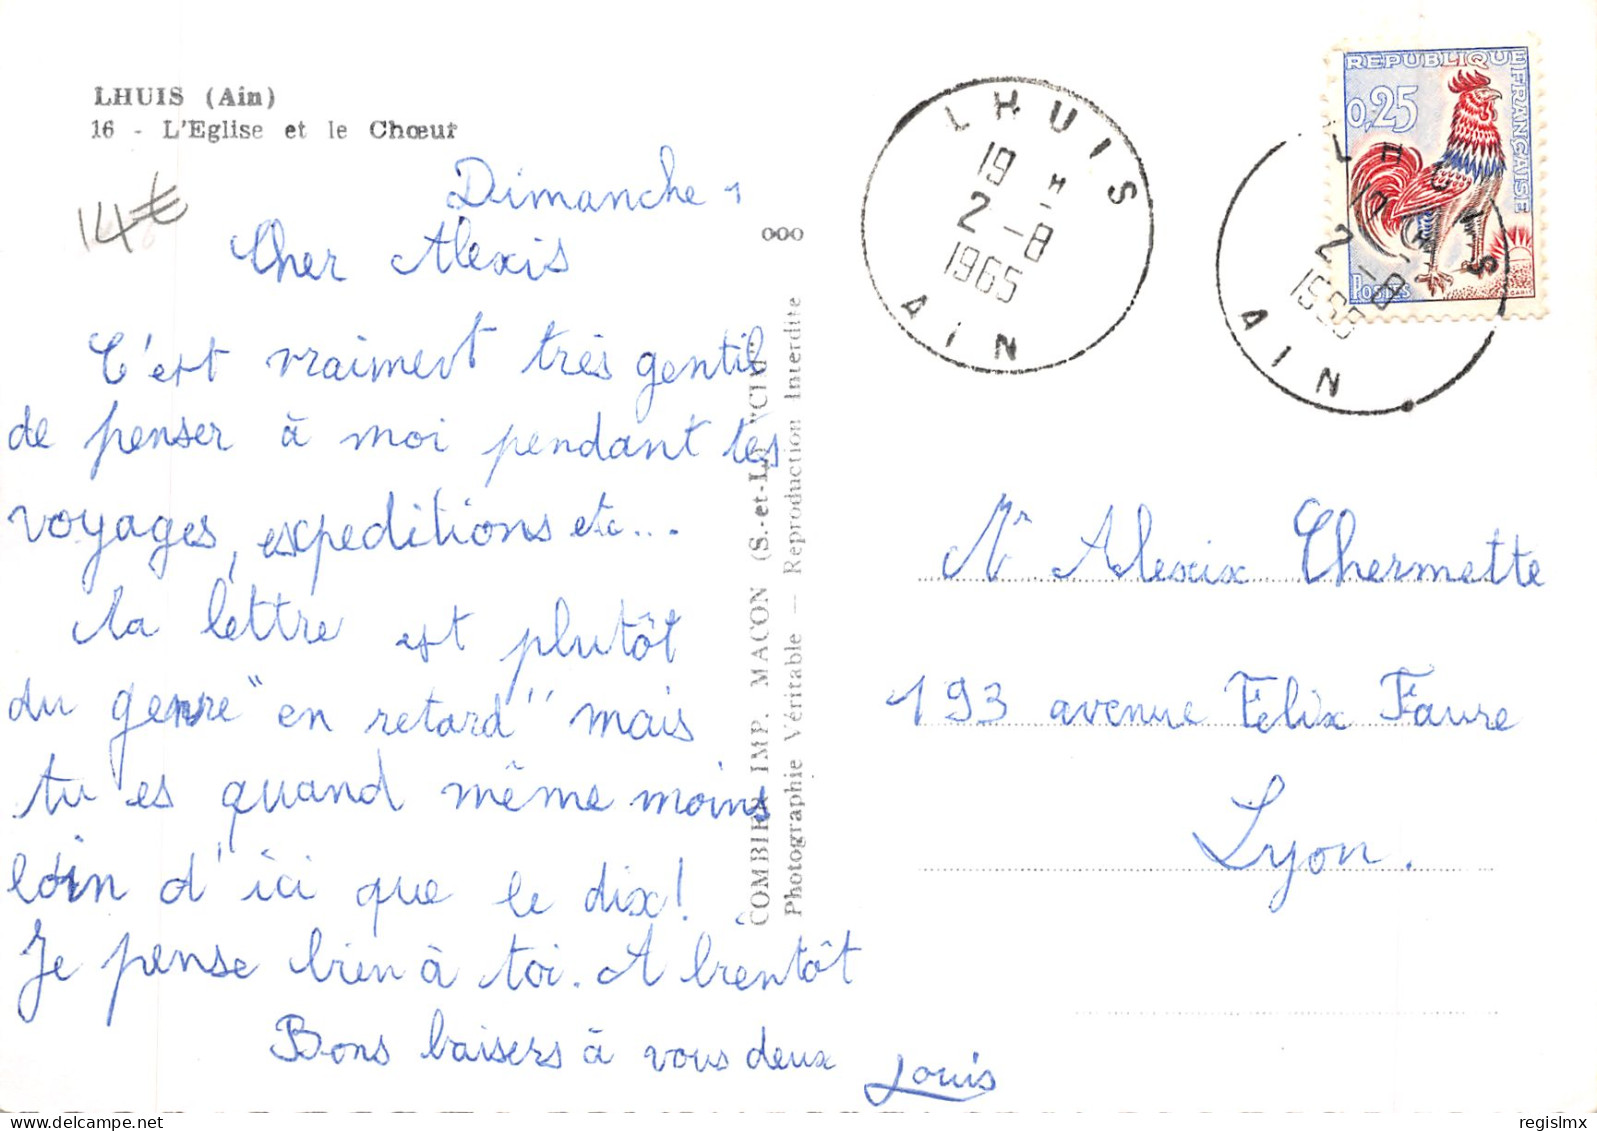 LHUIS (Ain)
16 - L'Eglise et le Chœur
14€
Dimanche 1
Cher Alexis
C'est vraiment très gentil
de penser à moi pendant tes
voyages, expeditions etc...
La lettre est plutôt
du genre "en retard" mais
tu es quand même moins
loin d'ici que le dix!
Je pense bien à toi. A bientôt
Bons baisers à vous deux
Louis
ooo
COMBIER IMP. MACON (S.-et-L.) "CIM"
Photographie Véritable — Reproduction Interdite
LHUIS
19 H
2 - 8
1965
AIN
REPUBLIQUE FRANÇAISE
0,25
POSTES
LHUIS
19 H
2 - 8
1965
AIN
Mr Alexix Chermette
193 avenue Felix Faure
Lyon.
regislmx